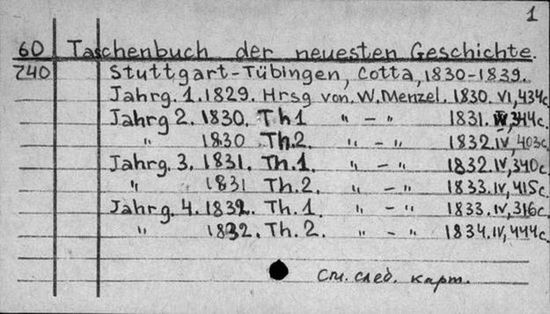 1
60 Taschenbuch der neuesten Geschichte.
240 Stuttgart-Tübingen, Cotta, 1830-1839.
Jahrg. 1. 1829. Hrsg von. W. Menzel. 1830. VI, 434c.
Jahrg 2. 1830. Th 1 " - " 1831. IV, 344c.
" 1830 Th.2. " - " 1832. IV, 403c.
Jahrg. 3. 1831. Th. 1. " - " 1832. IV, 340c.
" 1831 Th. 2. " - " 1833. IV, 415c.
Jahrg. 4. 1832. Th. 1. " - " 1833. IV, 316c.
" 1832. Th. 2. " - " 1834. IV, 444c.
См. след. карт.